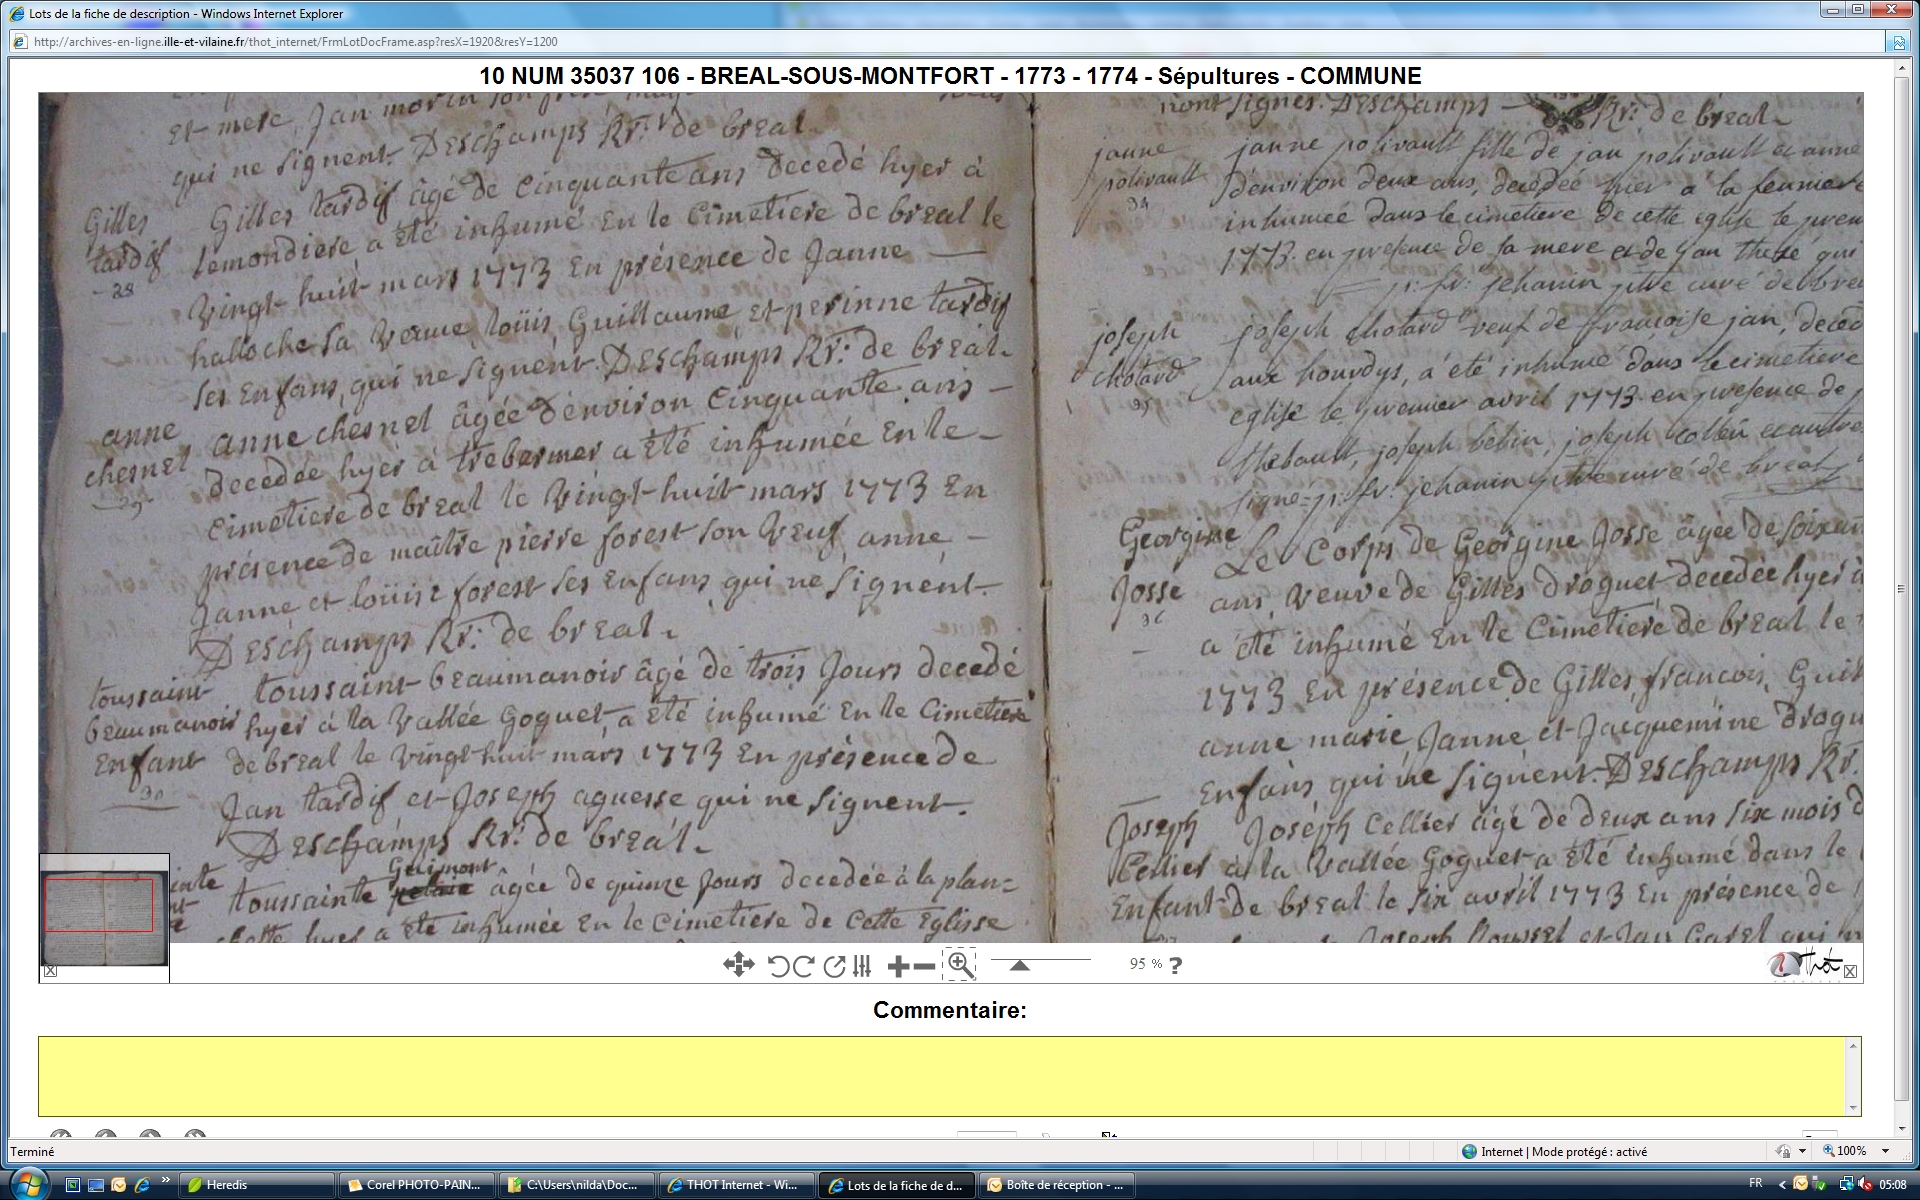 Lots de la fiche de description - Windows Internet Explorer
http://archives-en-ligne.ille-et-vilaine.fr/thot_internet/FrmLotDocFrame.asp?resX=1920&resY=1200
10 NUM 35037 106 - BREAL-SOUS-MONTFORT - 1773 - 1774 - Sépultures - COMMUNE
et mere, Jan morin son frere
qui ne signent. Deschamps Rr. de breal.
Gilles tardif
28
Gilles tardif âgé de cinquante ans decedé hyer à
lemondiere, a été inhumé en le cimetiere de breal le
vingt-huit mars 1773 en présence de Janne
halloche sa veuve, loüis, Guillaume, et perinne tardif
ses enfans, qui ne signent. Deschamps Rr. de breal.
anne chesnel
29
anne chesnel âgée d'environ cinquante ans
decedée hyer à trebermer a été inhumée en le
cimetiere de breal le vingt-huit mars 1773 en
présence de maître pierre forest son veuf, anne,
Janne et loüise forest ses enfans, qui ne signent.
Deschamps Rr. de breal.
toussaint
beaumanoir
enfant
30
toussaint beaumanoir âgé de trois jours decedé
hyer à la vallée Goguet a été inhumé en le cimetiere
de breal le vingt-huit mars 1773 en présence de
Jan tardif et Joseph aguesse qui ne signent.
Deschamps Rr. de breal.
Guimont
toussainte âgée de quinze jours decedée à la plan=
chette hyer a été inhumée en le cimetiere de cette eglisse
nont signés. Deschamps Rr. de breal.
janne
polivault
34
janne polivault fille de jan polivault et anne
d'environ deux ans, decedée hier a la
inhumeé dans le cimetiere de cette eglise le
1773. en presence de sa mere et de jan thezé qui
p: fr: jehanin ptre curé de
joseph
chotard
35
joseph chotard veuf de francoise jan,
aux hourdys, a été inhumé dans le cimetiere
eglise le premier avril 1773. en presence de
thebault, joseph bebin, joseph
signé= p: fr: jehanin ptre curé de breal
Georgine
Josse
36
Le Corps de Georgine Josse âgée de
ans, veuve de Gilles droguet decedée hyer
a été inhumé en le cimetiere de breal le
1773 en présence de Gilles, francois,
anne marie, Janne et Jacquemine
enfans qui ne signent. Deschamps Rr.
Joseph
Cellier
enfant
Joseph Cellier âgé de deux ans six mois
à la vallée Goguet a été inhumé dans le
de breal le six avril 1773 en présence de
Joseph et Jan Garel qui
95 %
?
Thot
Commentaire:
Terminé
Internet | Mode protégé : activé
100%
Heredis
Corel PHOTO-PAIN...
C:\Users\nilda\Doc...
THOT Internet - Wi...
Lots de la fiche de d...
Boîte de réception - ...
FR
05:08